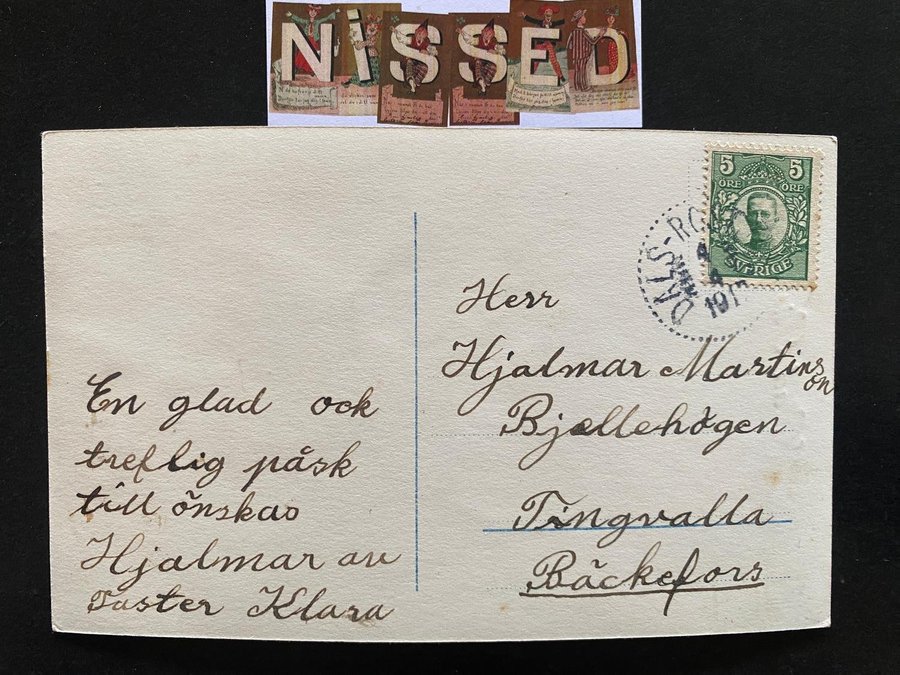 NiSSED
5 5
ÖRE ÖRE
SVERIGE
DALS-RO
4
4
191
Herr
Hjalmar Martinson
Bjællehögen
Tingvalla
Bäckefors
En glad ock
treflig påsk
till önskas
Hjalmar av
Faster Klara